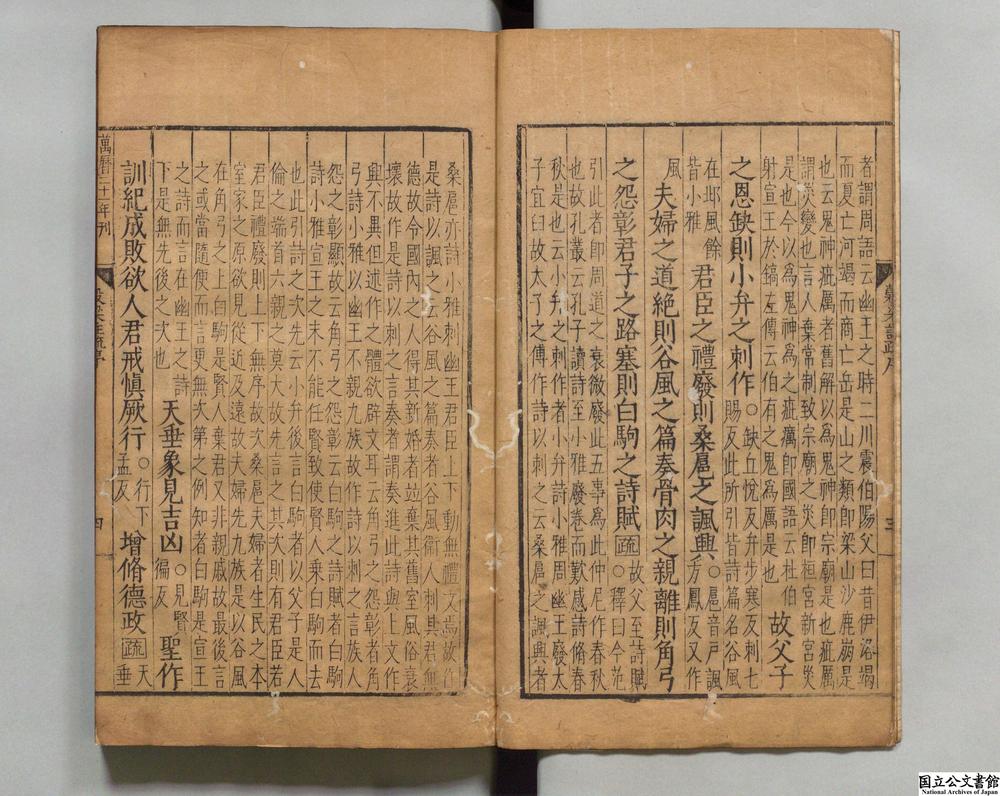 者謂周語云幽王之時二川震伯陽父曰昔伊洛竭
而夏亡河竭而商亡岳是山之類即梁山沙鹿崩是
也云鬼神疵厲者舊解以為鬼神即宗廟是也疵厲
謂災變也言人棄常制致宗廟之災即桓宮新宮災
是也今以為鬼神為之疵癘即國語云杜伯
射宣王於鎬左傳云伯有之鬼為厲是也
故父子
之恩缺則小弁之刺作
○缺丘悅反弁步寒反刺七
賜反此所引皆詩篇名谷風
在邶風餘
皆小雅
君臣之禮廢則桑扈之諷興
○扈音戶諷
方鳳反又作
風
夫婦之道絶則谷風之篇奏骨肉之親離則角弓
之怨彰君子之路塞則白駒之詩賦
疏
故父至詩賦
○釋曰今范
引此者即周道之衰微廢此五事為此仲尼作春秋
也故孔叢云孔子讀詩至小雅廢卷而歎感詩脩春
秋是也云小弁之刺作者小弁詩小雅周幽王廢太
子宜臼故太子之傅作詩以刺之云桑扈之諷興者
三
桑扈亦詩小雅刺幽王君臣上下動無禮文焉故作
是詩以諷之云谷風之篇奏者谷風衞人刺其君無
德故令國內之人得其新婚者並棄其舊室風俗衰
壞故作是詩以刺之言奏者謂奏進此詩與上文作
興不異但述作之體欲辟文耳云角弓之怨彰者角
弓詩小雅以幽王不親九族故作詩以刺之言族人
怨之彰顯故云角弓之怨彰云白駒之詩賦者白駒
詩小雅宣王之末不能任賢致使賢人乘白駒而去
也此引詩之次先云小弁後言白駒者以父子是人
倫之端首六親之莫大故先言之其次則有君臣若
君臣禮廢則上下無序故次桑扈夫婦者生民之本
室家之原欲見從近及遠故夫婦先九族是以谷風
在角弓之上白駒是賢人棄君又非親戚故最後言
之或當隨便而言更無次第之例知者白駒是宣王
之詩而言在幽王之詩
下是無先後之次也
天垂象見吉凶
○見賢
徧反
聖作
訓紀成敗欲人君戒慎厥行
○行下
孟反
增脩德政
疏
天
垂
四
萬曆二十一年刊
穀梁註疏序
国立公文書館
National Archives of Japan